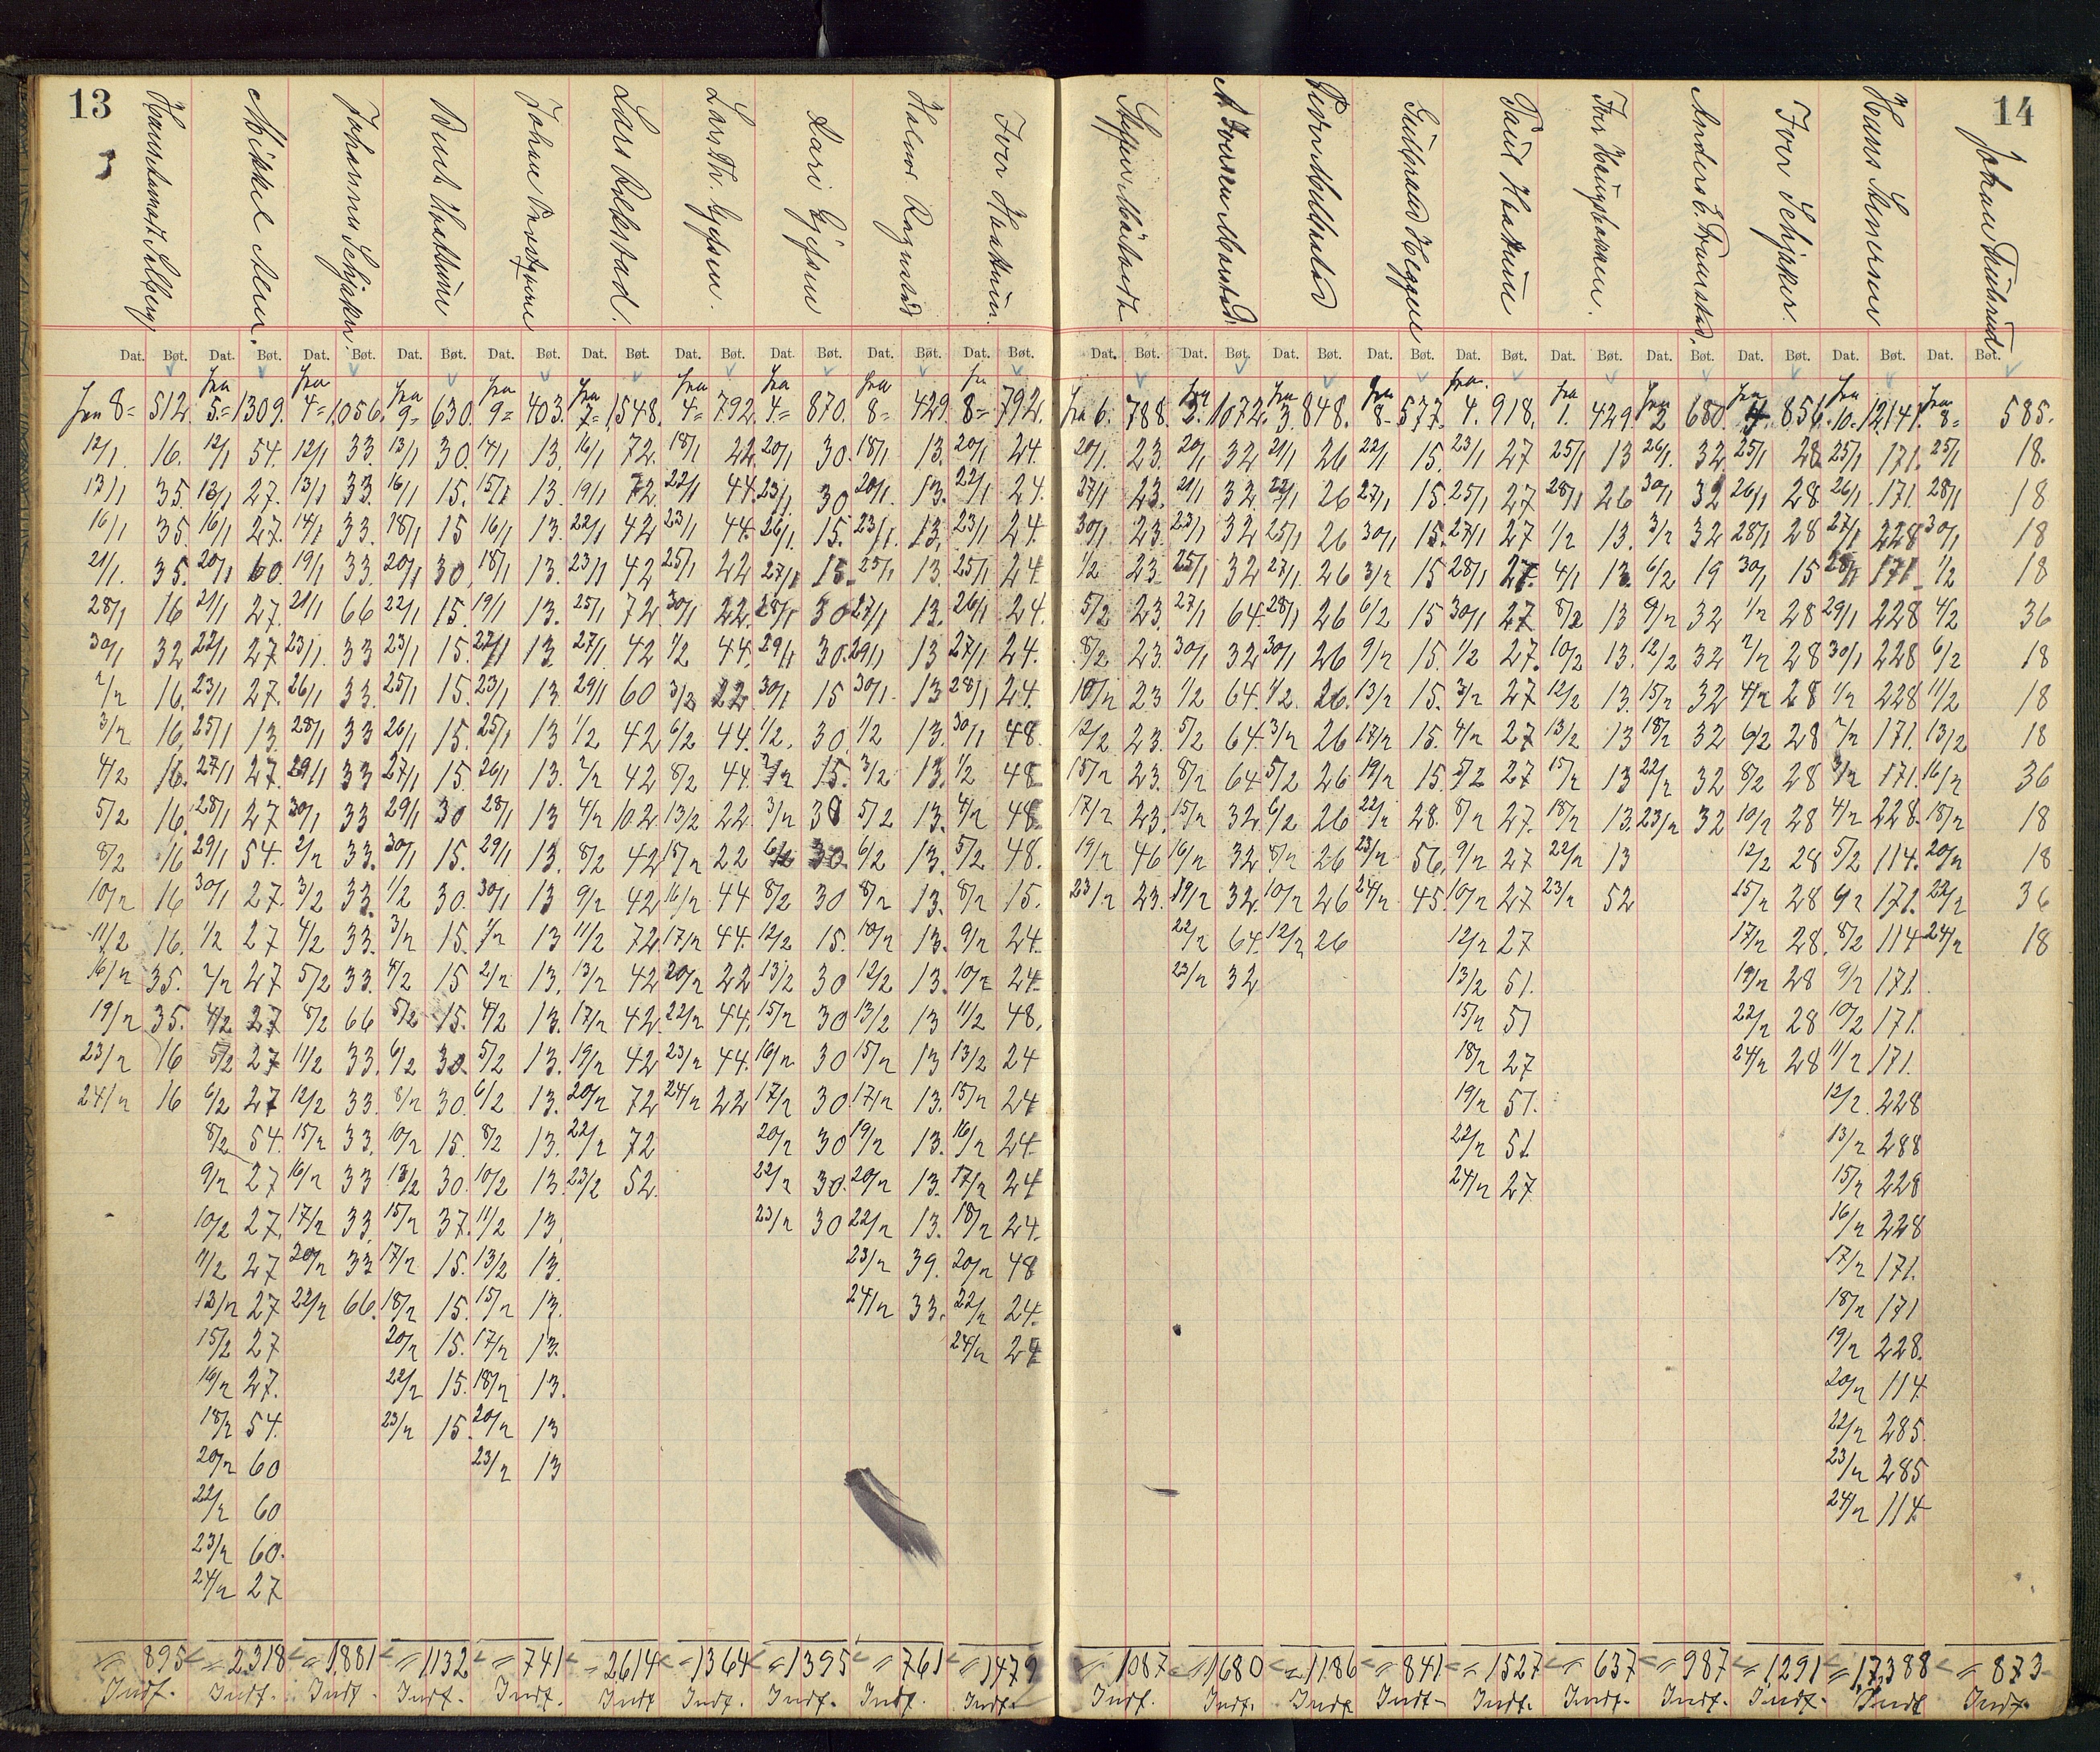 13
14
Mikkel Moen.
Lars Rekstad.
Lars Th. Gjesen.
Kari Gjesen
Iver Haakuen.
Iver Schjaker.
Hans Stenersen
Dat. Bøt. Dat. Bøt. Dat. Bøt. Dat. Bøt. Dat. Bøt. Dat. Bøt. Dat. Bøt. Dat. Bøt. Dat. Bøt. Dat. Bøt. Dat. Bøt. Dat. Bøt. Dat. Bøt. Dat. Bøt. Dat. Bøt. Dat. Bøt. Dat. Bøt. Dat. Bøt. Dat. Bøt. Dat. Bøt.
fra 8= 512. fra 5.= 1309. fra 4= 1,056. fra 9= 630. fra 9= 403. fra 7= 1,548. fra 4= 792. fra 4= 870. fra 8= 429. fr 8= 792. fra 6. 788. fra 3. 1072. fra 3. 848. fra 8- 577. fra. 4. 918. fra 1. 429. fra 2 680. fra 4. 856. fra 10. 12,141. fra 8= 585.
12/1 16. 12/1 54. 12/1 33. 13/1 30. 14/1 13. 16/1 72. 18/1 22. 20/1 30. 18/1 13. 20/1 24. 20/1. 23. 20/1 32 21/1 26 22/1 15. 23/1 27 25/1 13 26/1. 32. 25/1 28 25/1 171. 25/1 18.
13/1 35. 13/1 27. 13/1 33. 16/1 15. 15/1 13. 19/1 72. 22/1 44. 23/1. 30 20/1. 13. 22/1 24. 27/1 23. 21/1 32. 22/1 26 27/1 15. 25/1 27 28/1 26 30/1 32 26/1 28 26/1. 171. 28/1 18
16/1 35. 16/1 27. 14/1 33. 18/1 15 16/1 13. 22/1 42 23/1 44. 26/1. 15. 23/1. 13. 23/1 24. 30/1 23. 23/1 32 25/1 26 30/1 15. 27/1 27 1/2 13. 3/2 32 28/1 28 27/1 228 30/1 18
21/1. 35. 20/1 60. 19/1 33. 20/1 30. 18/1 13. 23/1 42 25/1 22 27/1 15. 25/1 13. 25/1 24. 1/2 23. 25/1 32 27/1 26 3/2 15 28/1 27. 4/1 13. 6/2 19 30/1 15 28/1 171 1/2 18
28/1 16 21/1 27. 21/1 66 22/1 15. 19/1 13. 25/1 72. 30/1 22. 28/1 30 27/1 13. 26/1 24. 5/2 23. 27/1 64. 28/1 26 6/2 15 30/1 27 8/2 13 9/2 32 1/2 28 29/1 228 4/2 36
30/1 32 22/1 27 23/1. 33 23/1 15. 22/1 13. 27/1 42 1/2 44. 29/1 30. 29/1 13 27/1 24. 8/2 23. 30/1 32 30/1 26 9/2 15. 1/2 27. 10/2 13. 12/2 32 2/2 28 30/1 228 6/2 18
2/2 16. 23/1 27. 26/1 33. 25/1 15. 23/1 13. 29/1 60 3/2 22. 30/1 15 30/1. 13 28/1 24. 10/2 23 1/2 64. 1/2. 26. 13/2 15. 3/2 27 12/2 13. 15/2 32 4/2 28 1/2 228 11/2 18
3/2 16. 25/1 13. 28/1 33 26/1 15. 25/1 13 1/2 42 6/2 44. 1/2. 30. 1/2 13. 30/1 48. 12/2 23. 5/2 64. 3/2 26 17/2 15. 4/2 27 13/2 13 18/2 32 6/2 28 2/2 171. 13/2 18
4/2 16. 27/1 27. 29/1 33 27/1 15. 26/1 13. 2/2 42 8/2 44. 2/2 15. 3/2 13. 1/2 48 15/2 23. 8/2 64 5/2 26 19/2 15. 5/2 27 15/2 13 22/2 32 8/2 28 3/2 171. 16/2 36
5/2 16. 28/1 27 30/1 33 29/1 30 28/1 13 4/2 102. 13/2 22. 3/2 30 5/2 13. 4/2 48. 17/2 23. 15/2 32 6/2 26 22/2 28. 8/2 27. 18/2 13. 23/2 32 10/2 28 4/2 228. 18/2 18
8/2 16 29/1 54. 2/2 33. 30/1 15. 29/1 13. 8/2 42 15/2 22 6/2 30. 6/2 13. 5/2 48. 19/2 46 16/2 32 8/2 26 23/2 56. 9/2 27 22/2 13 12/2 28 5/2 114. 20/2 18
10/2 16 30/1 27. 3/2 33. 1/2 30. 30/1 13 9/2 42 16/2 44 8/2 30 8/2 13. 8/2 15. 23/2 23. 19/2 32. 10/2 26 24/2 45. 10/2 27 23/2 52 15/2 28 6/2 171. 22/2 36
11/2 16. 1/2 27 4/2 33. 3/2 15. 1/2 13 11/2 72. 17/2 44. 12/2 15. 10/2 13. 9/2 24. 22/2 64. 12/2 26 12/2 27 17/2 28. 8/2 114. 24/2 18
16/2 35. 2/2 27 5/2 33. 4/2 15 2/2 13. 13/2 42 20/2 22 13/2 30 12/2 13. 10/2 24. 23/2 32 13/2 51. 19/2 28 9/2 171.
19/2 35. 4/2 27 8/2 66 5/2 15. 4/2 13. 17/2 42. 22/2 44. 15/2 30 13/2 13 11/2 48. 15/2 51 22/2 28 10/2 171.
23/2 16 5/2 27 11/2 33. 6/2 30. 5/2 13. 19/2 42 23/2 44. 16/2 30 15/2 13 13/2 24 18/2 27 24/2 28 11/2 171.
24/2 16 6/2 27 12/2 33. 8/2 30. 6/2 13. 20/2 72 24/2 22 17/2 30 17/2 13. 15/2 24 19/2 51. 12/2. 228
8/2 54. 15/2 33. 10/2 15. 8/2 13. 22/2 72 20/2 30 19/2 13. 16/2 24. 22/2 51 13/2 288
9/2 27 16/2 33 13/2 30. 10/2 13. 23/2 52. 22/2 30. 20/2 13. 17/2 24 24/2 27. 15/2 228
10/2 27. 17/2 33. 15/2 37. 11/2 13. 23/2 30 22/2 13. 18/2 24. 16/2 228
11/2 27 20/2 33 17/2 15. 13/2 13. 23/2 39. 20/2 48 17/2 171.
13/2 27 22/2 66. 18/2 15. 15/2 13. 24/2 33. 22/2 24. 18/2 171
15/2 27 20/2 15. 17/2 13. 24/2 24 19/2 228.
16/2 27. 22/2 15. 18/2 13. 20/2 114.
18/2 54. 23/2 15. 20/2 13 22/2 285.
20/2 60 23/2 13 23/2 285
22/2 60 24/2 114
23/2 60.
24/2 27
= 895 = 2,318 = 1,881 = 1132 = 741 = 2614 = 1364 = 1395 = 761 = 1479 = 1087 = 1680 = 1186 = 841 = 1527 = 637 = 987 = 1291 = 17,388 = 873
Indf. Indf. Indf. Indf. Indf. Indf. Indf. Indf. Indf. Indf. Indf. Indf. Indf. Indf. Indf. Indf. Indf. Indf. Indf. Indf.